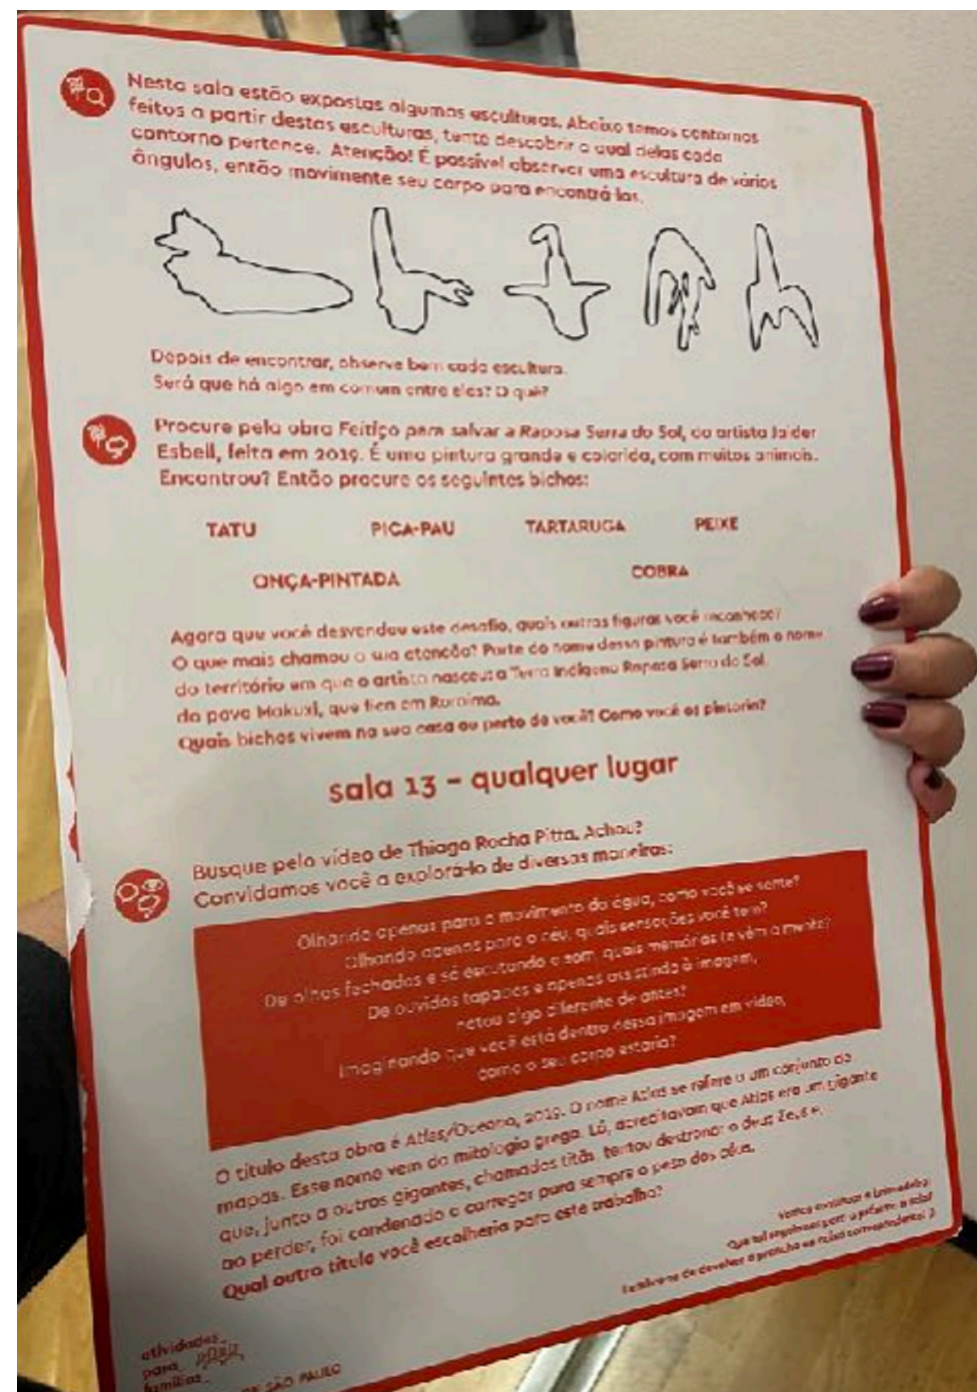 Nesta sala estão expostas algumas esculturas. Abaixo temos contornos
feitos a partir destas esculturas, tente descobrir a qual delas cada
contorno pertence. Atenção! É possível observar uma escultura de vários
ângulos, então movimente seu corpo para encontrá-las.
Depois de encontrar, observe bem cada escultura.
Será que há algo em comum entre elas? O quê?
Procure pela obra Feitiço para salvar a Raposa Serra do Sol, do artista Jaider
Esbell, feita em 2019. É uma pintura grande e colorida, com muitos animais.
Encontrou? Então procure os seguintes bichos:
TATU PICA-PAU TARTARUGA PEIXE
ONÇA-PINTADA COBRA
Agora que você desvendou este desafio, quais outras figuras você reconhece?
O que mais chamou a sua atenção? Parte do nome dessa pintura é também o nome
do território em que o artista nasceu: a Terra Indígena Raposa Serra do Sol,
do povo Makuxi, que fica em Roraima.
Quais bichos vivem na sua casa ou perto de você? Como você os pintaria?
sala 13 – qualquer lugar
Busque pelo vídeo de Thiago Rocha Pitta. Achou?
Convidamos você a explorá-lo de diversas maneiras:
Olhando apenas para o movimento da água, como você se sente?
Olhando apenas para o céu, quais sensações você tem?
De olhos fechados e só escutando o som, quais memórias te vêm à mente?
De ouvidos tapados e apenas assistindo à imagem,
notou algo diferente de antes?
Imaginando que você está dentro dessa imagem em vídeo,
como o seu corpo estaria?
O título desta obra é Atlas/Oceano, 2019. O nome Atlas se refere a um conjunto de
mapas. Esse nome vem da mitologia grega. Lá, acreditavam que Atlas era um gigante
que, junto a outros gigantes, chamados titãs, tentou destronar o deus Zeus e,
ao perder, foi condenado a carregar para sempre o peso dos céus.
Qual outro título você escolheria para este trabalho?
Que tal seguirmos para a próxima sala?
Lembre-se de devolver a prancha na caixa correspondente! :)
atividades
para
famílias
SÃO PAULO